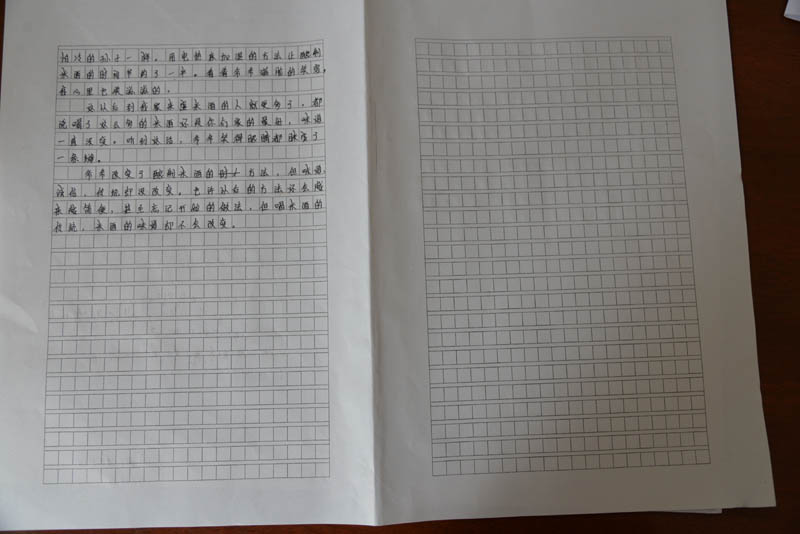 怕冷的孙子一样。用电热毯加温的方法让酿制
米酒的时间节约了一半。看着爷爷满脸的笑容,
我心里也暖滋滋的。
从以后到我家来喝米酒的人就更多了,都
说喝了这么多的米酒还是你们家的最甜,味道
一直没变。听到这话,爷爷笑得眼睛都眯成了
一条缝。
爷爷改变了酿制米酒的方法,但味道
没变,传统却没改变。也许以后的方法还会越
来越简便,甚至忘记开始的做法,但喝米酒的
传统,米酒的味道却不会改变。